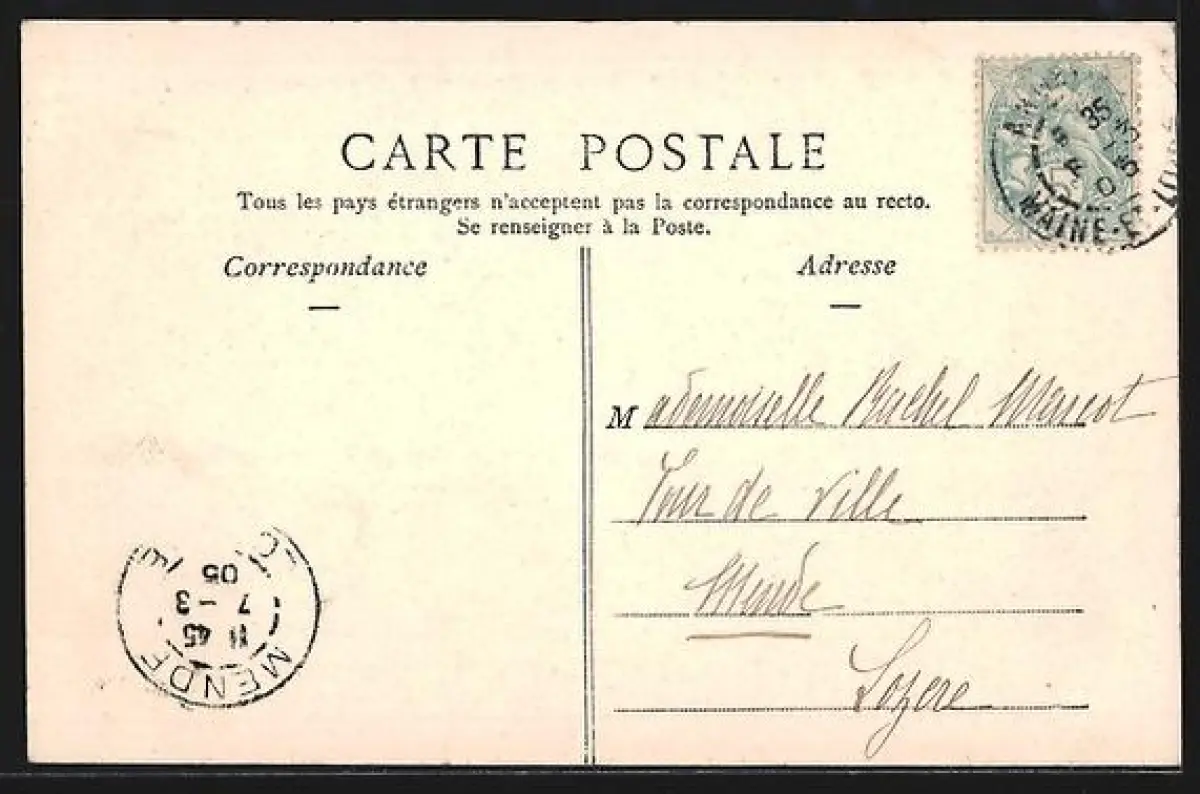 CARTE POSTALE
Tous les pays étrangers n'acceptent pas la correspondance au recto.
Se renseigner à la Poste.
Correspondance
Adresse
Mademoiselle Rachel Maurot
Tour de Ville
Mende
Lozere
MAINE-ET-LOIRE
MENDE
11 45
7 - 3
05